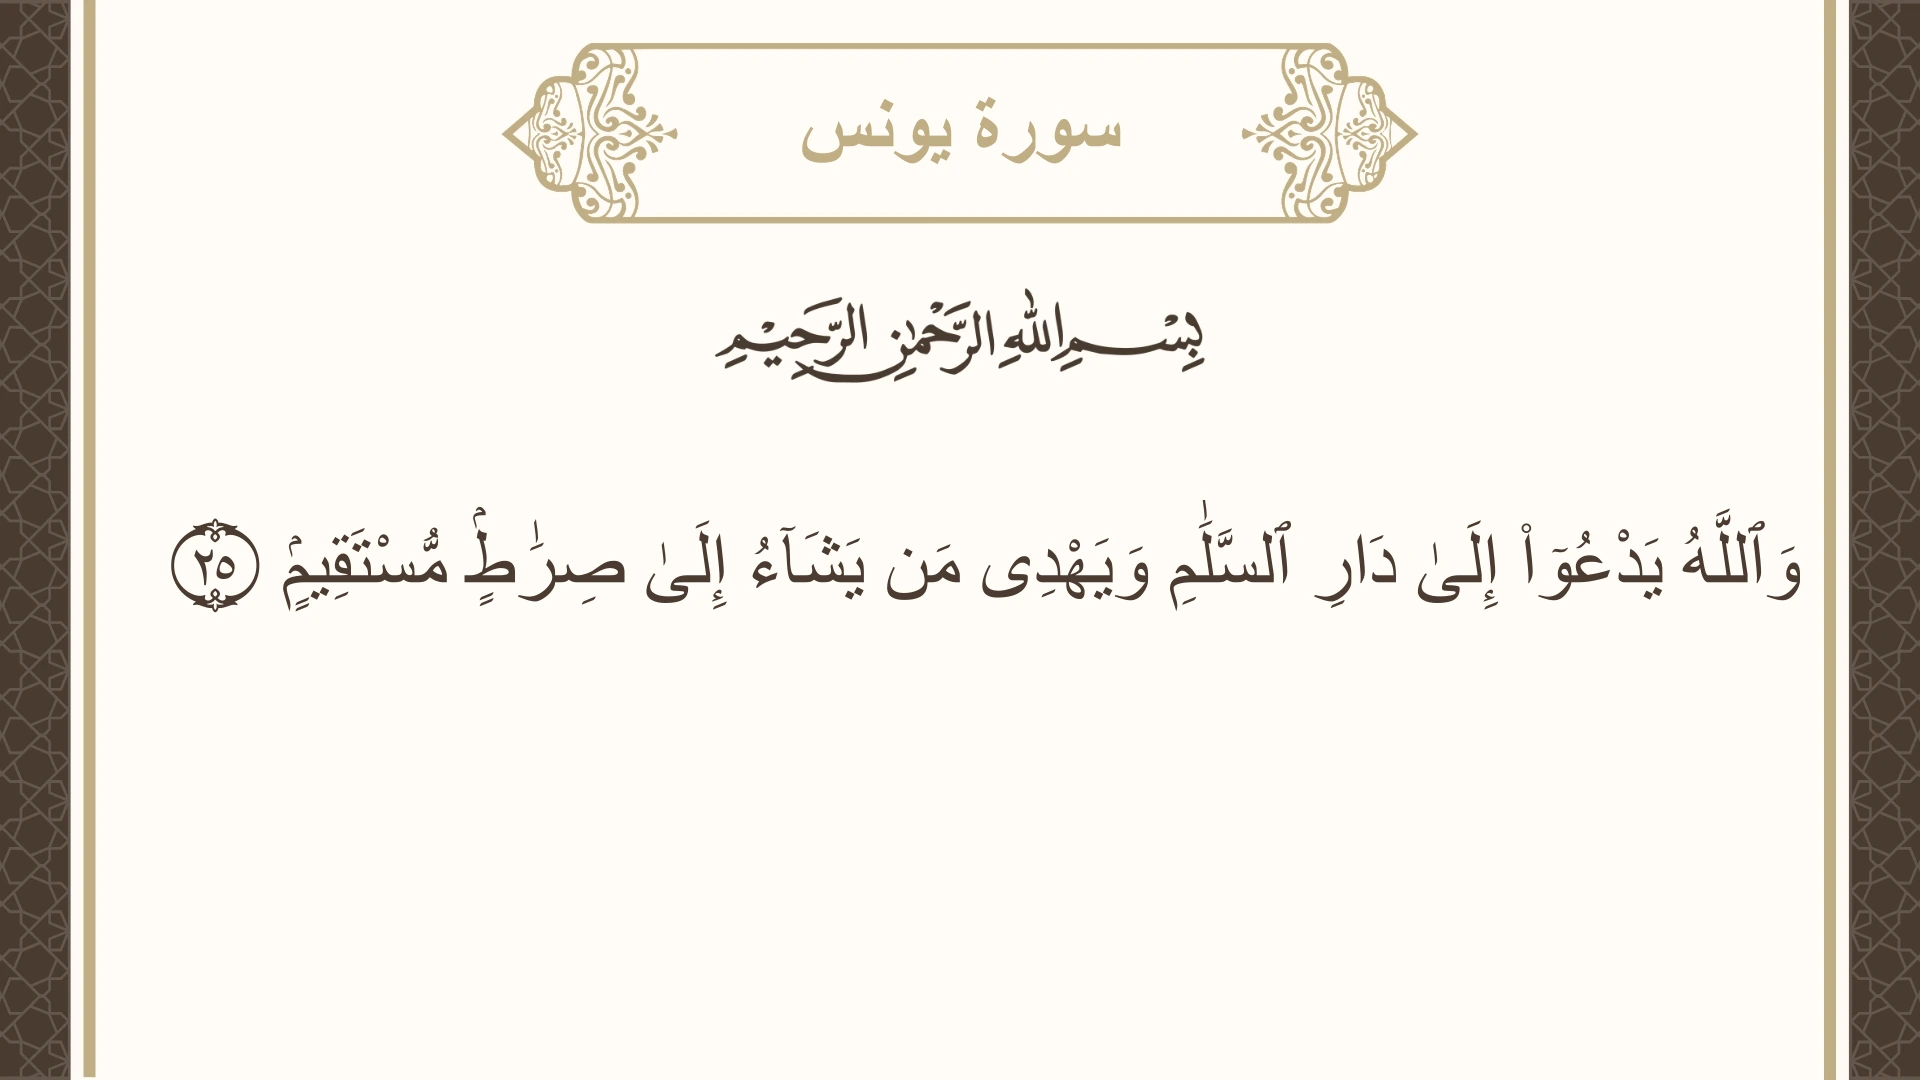 سورة يونس
بِسْمِ اللهِ الرَّحْمٰنِ الرَّحِيْمِ
وَٱللَّهُ يَدْعُوٓا۟ إِلَىٰ دَارِ ٱلسَّلَٰمِ وَيَهْدِى مَن يَشَآءُ إِلَىٰ صِرَٰطٍۢ مُّسْتَقِيمٍۢ ٢٥